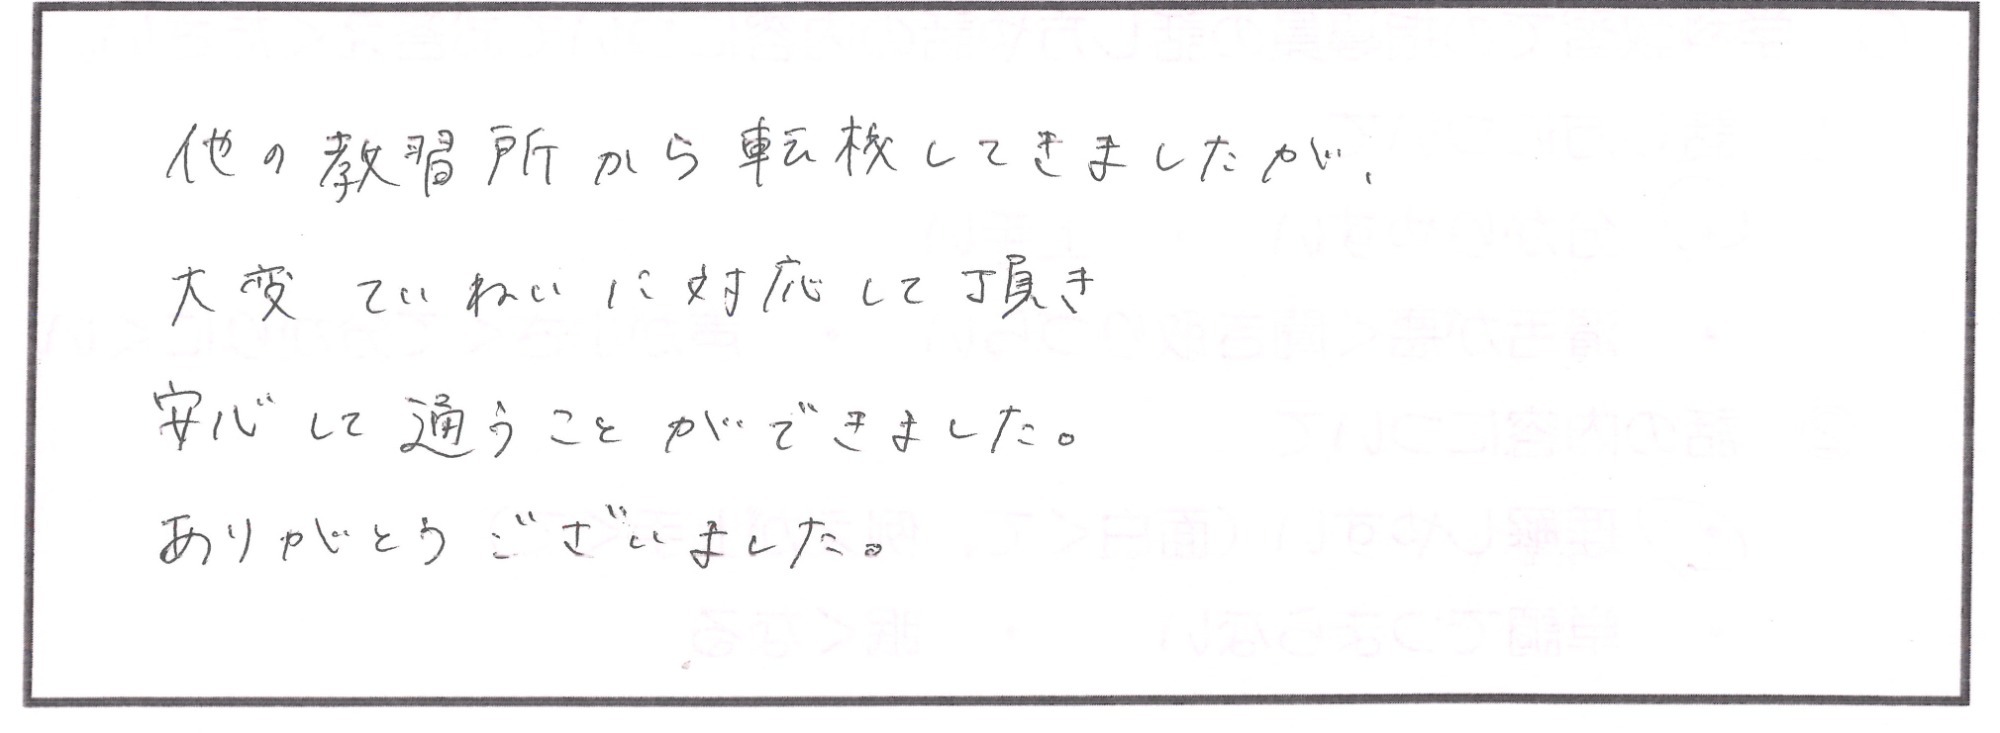 他の教習所から転校してきましたが、
大変ていねいに対応して頂き
安心して通うことができました。
ありがとうございました。